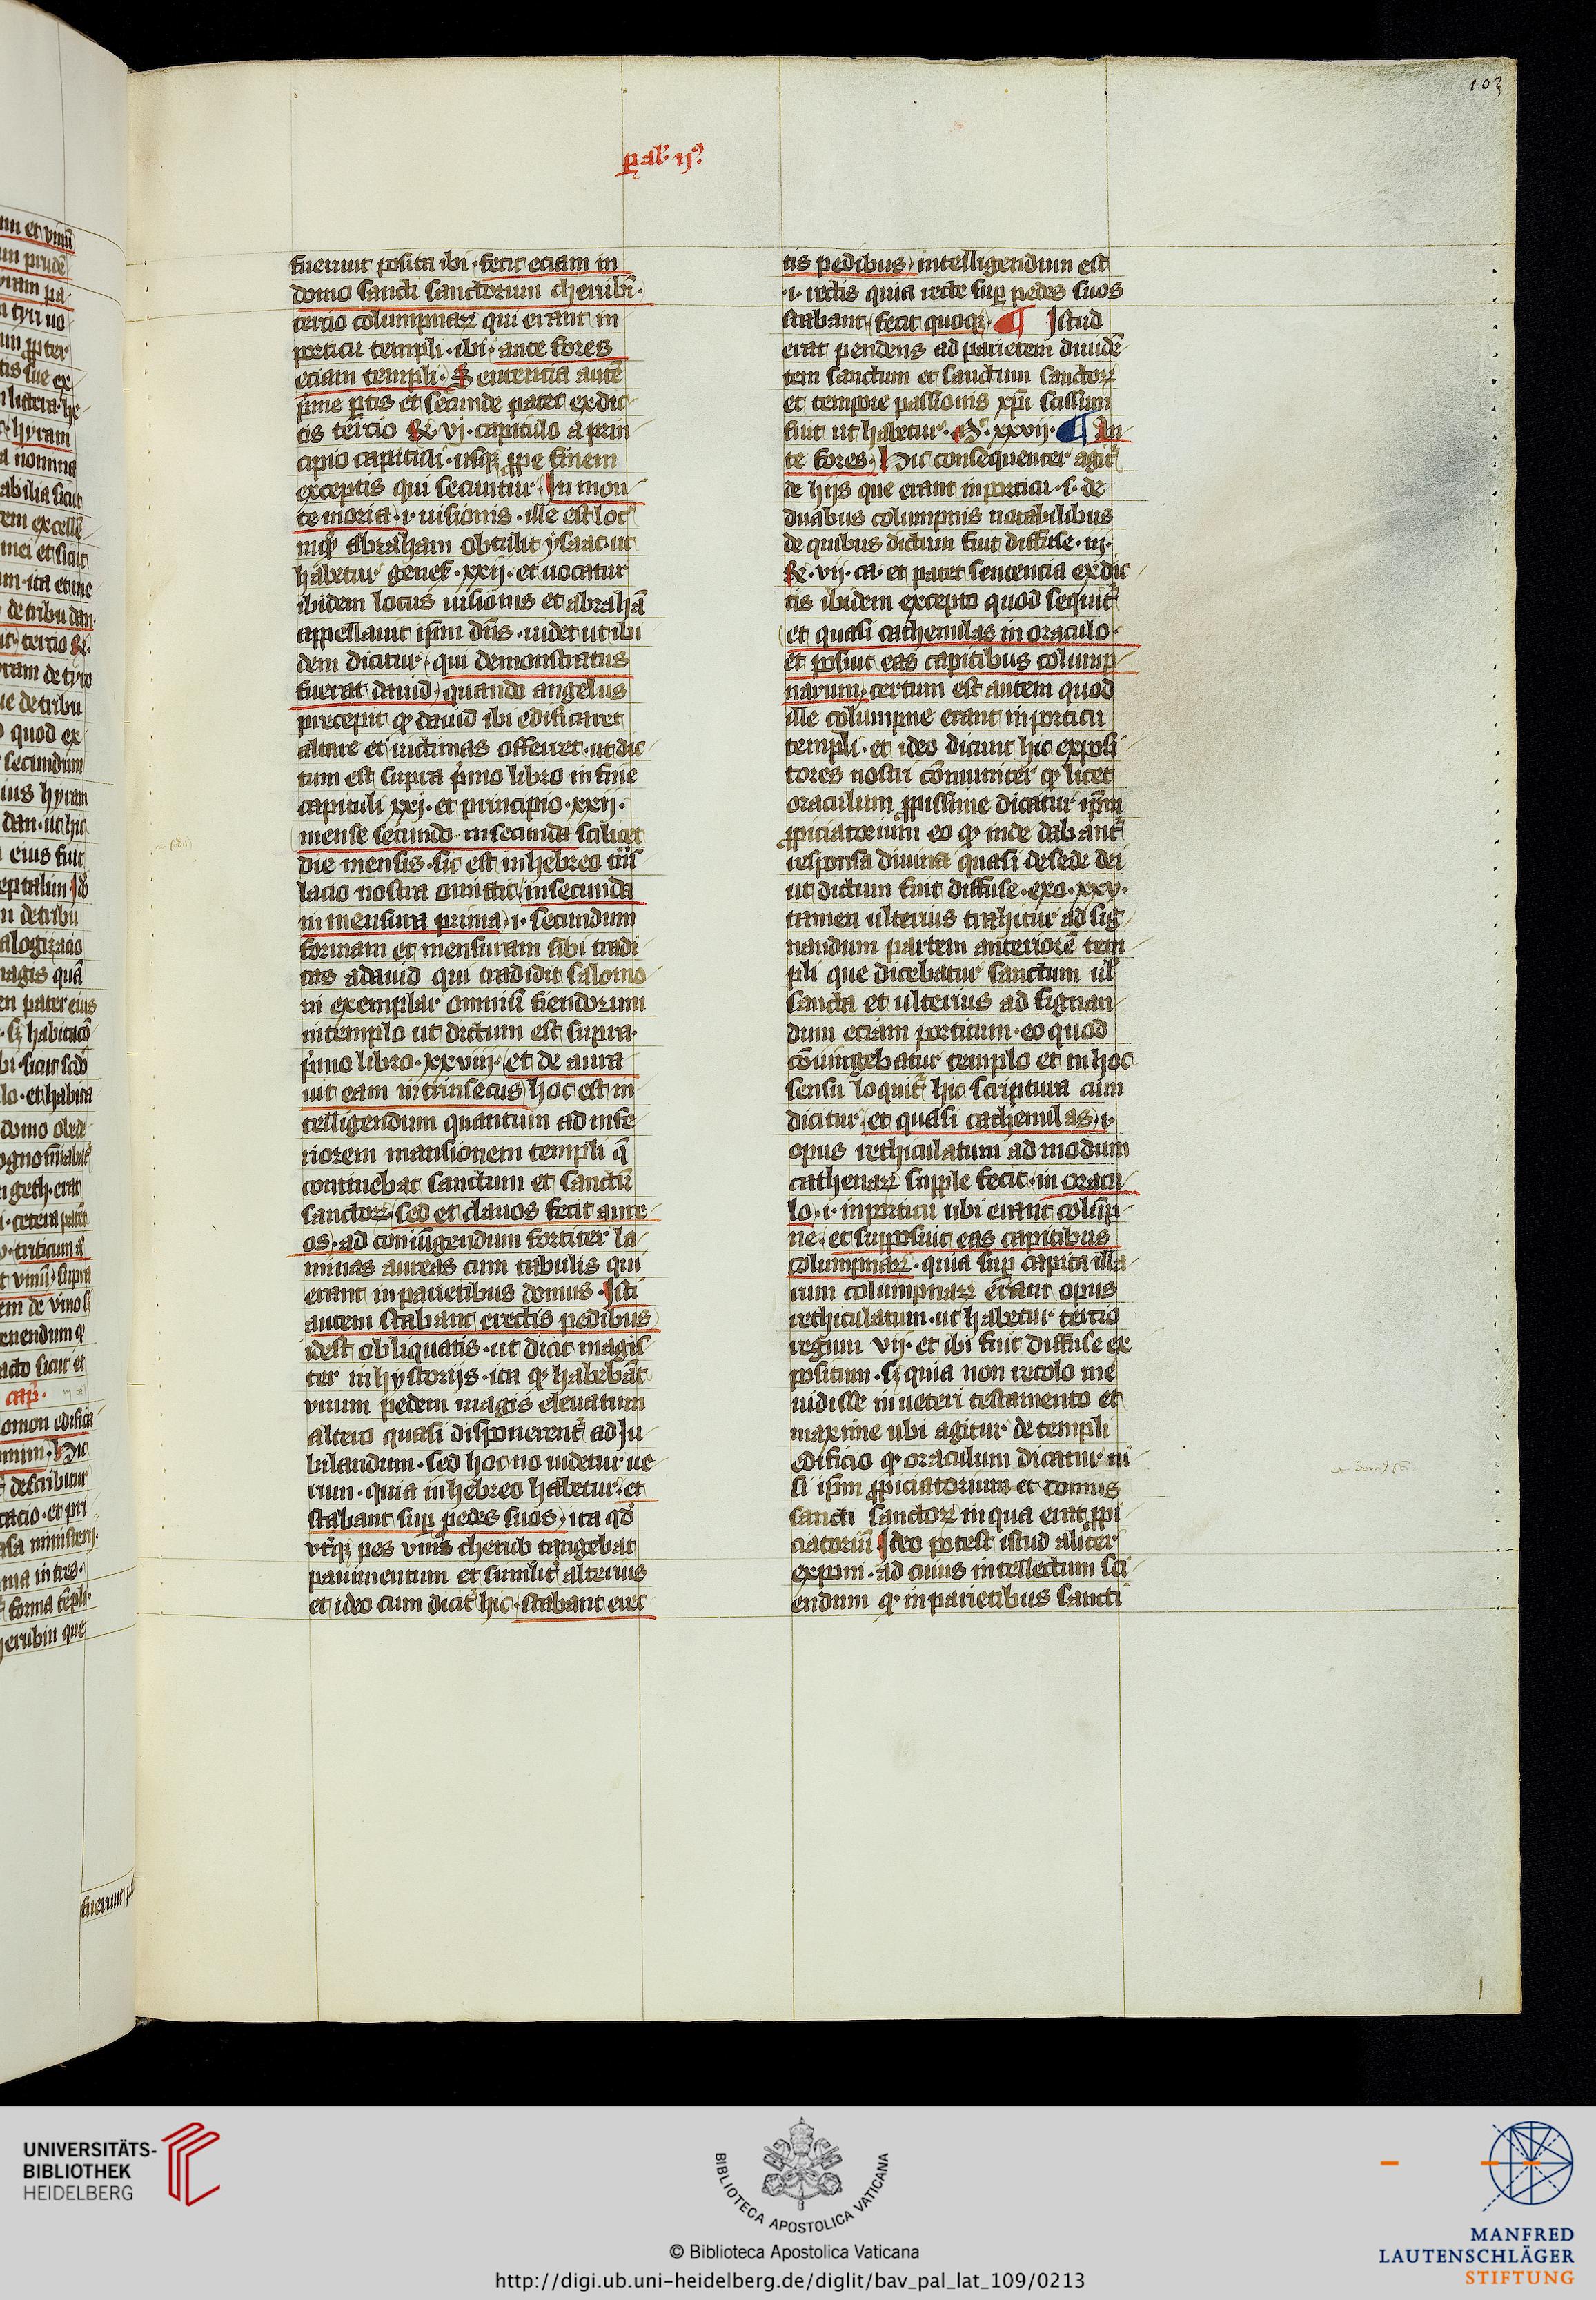 103
p̱al'. ijº.
fuerunt posita ibi. fecit eciam in
domo sancti sanctorum cherubī.
tercio columpnaꝝ qui erant in
porticu templi. ibi. ante fores
eciam templi. Sentencia autē
p̓me ꝑtis et secunde patet ex dic
tis tercio R. vj. capitulo a prin
cipio capituli. usqꝫ ꝓpe finem
exceptis qui secuntur. In mon
te moria. i. uisionis. ille est loc᷒
inqͦ abraham obtulit ysaac. ut
habetur genes. xxij. et uocatur
ibidem locus uisionis et abrahā
appellauit ip̄m dn̄s. uidet ut ibi
dem dicitur. qui demonstratus
fuerat dauid. quando angelus
precepit ꝙ dauid ibi edificaret
altare et uictimas offerret. ut dic
tum est supra p̓mo libro in fine
capituli xxj. et principio. xxij.
mense secundo. in secunda scilicet
die mensis. sic est in hebreo tn̄s
lacio nostra omittit. in secunda
in mensura prima. i. secundum
formam et mensuram sibi tradi
tas adauid qui tradidit salomo
ni exemplar omniū fiendorum
intemplo ut dictum est supra.
p̓mo libro. xxviij. et de aura
uit eam intrinsecus. hoc est in
telligendum quantum ad infe
riorem mansionem templi q̄
continebat sanctum et sanctū
sanctoꝝ. sed et clauos fecit aure
os. ad coniūgendum fortiter la
minas aureas cum tabulis qui
erant in parietibus domus. Isti
autem stabant erectis pedibus
idest obliquatis. ut dicit magis
ter in hystorijs. ita ꝙ habebāt
vnum pedem magis eleuatum
altero quasi disponerent᷑ ad Ju
bilandum. sed hoc nō uidetur ue
rum. quia in hebreo habetur. et
stabant suꝑ pedes suos. ita qd̓
vt̓qꝫ pes vni᷒s cherub tangebat
pauimentum et similit̓ alterius
et ideo cum dicit᷑ hic. stabant erec
tis pedibus. intelligendum est
.i. rectis quia recte suꝑ pedes suos
stabant. fecit quoqꝫ. ¶ Istud
erat pendens ad parietem diuidē
tem sanctum et sanctum sanctoꝝ
et tempore passionis xp̄i scissum
fuit ut habetur. M. xxvij. ¶ An
te fores. Hic consequenter agit᷑
de hijs que erant in porticu. s. de
duabus columpnis notabilibus
de quibus dictum fuit diffuse. iij.
R. vij. ca. et patet sentencia ex dic
tis ibidem excepto quod sequit᷑
et quasi cathenulas in oraculo.
et posuit eas capitibus colump
narum. certum est autem quod
ille columpne erant in porticu
templi. et ideo dicunt hic exposi
tores nostri cōmuniter ꝙ licet
oraculum ꝓpissime dicatur ip̄m
ꝓpiciatorium eo ꝙ inde dabant᷑
responsa diuina quasi de sede dei
ut dictum fuit diffuse. exo. xxv.
tamen ulterius trahitur ad sig
nandum partem anteriorē tem
pli que dicebatur sanctum ul̓
sancta et ulterius ad signan
dum eciam porticum. eo quod
cōiungebatur templo et in hoc
sensu loquit᷑ hic scriptura cum
dicitur. et quasi cathenulas. i.
opus rethiculatum ad modum
cathenaꝝ supple fecit. in oracu
lo. i. inporticu ubi erant colūp
ne. et supposuit eas capitibus
columpnaꝝ. quia suꝑ capita illa
rum columpnaꝝ erant opus
rethiculatum. ut habetur tercio
regum vij. et ibi fuit diffuse ex
positum. sꝫ quia non recolo me
uidisse in ueteri testamento et
maxime ubi agitur de templi
edificio ꝙ oraculum dicatur ni
si ip̄m ꝓpiciatorium et domus
sancti sanctoꝝ in qua erat ꝓpi
ciatoriū Ideo potest istud aliter
exponi. ad cuius intellectum sci
endum ꝙ in parietibus sancti
UNIVERSITÄTS-
BIBLIOTHEK
HEIDELBERG
BIBLIOTECA APOSTOLICA VATICANA
© Biblioteca Apostolica Vaticana
http://digi.ub.uni-heidelberg.de/diglit/bav_pal_lat_109/0213
MANFRED
LAUTENSCHLÄGER
STIFTUNG